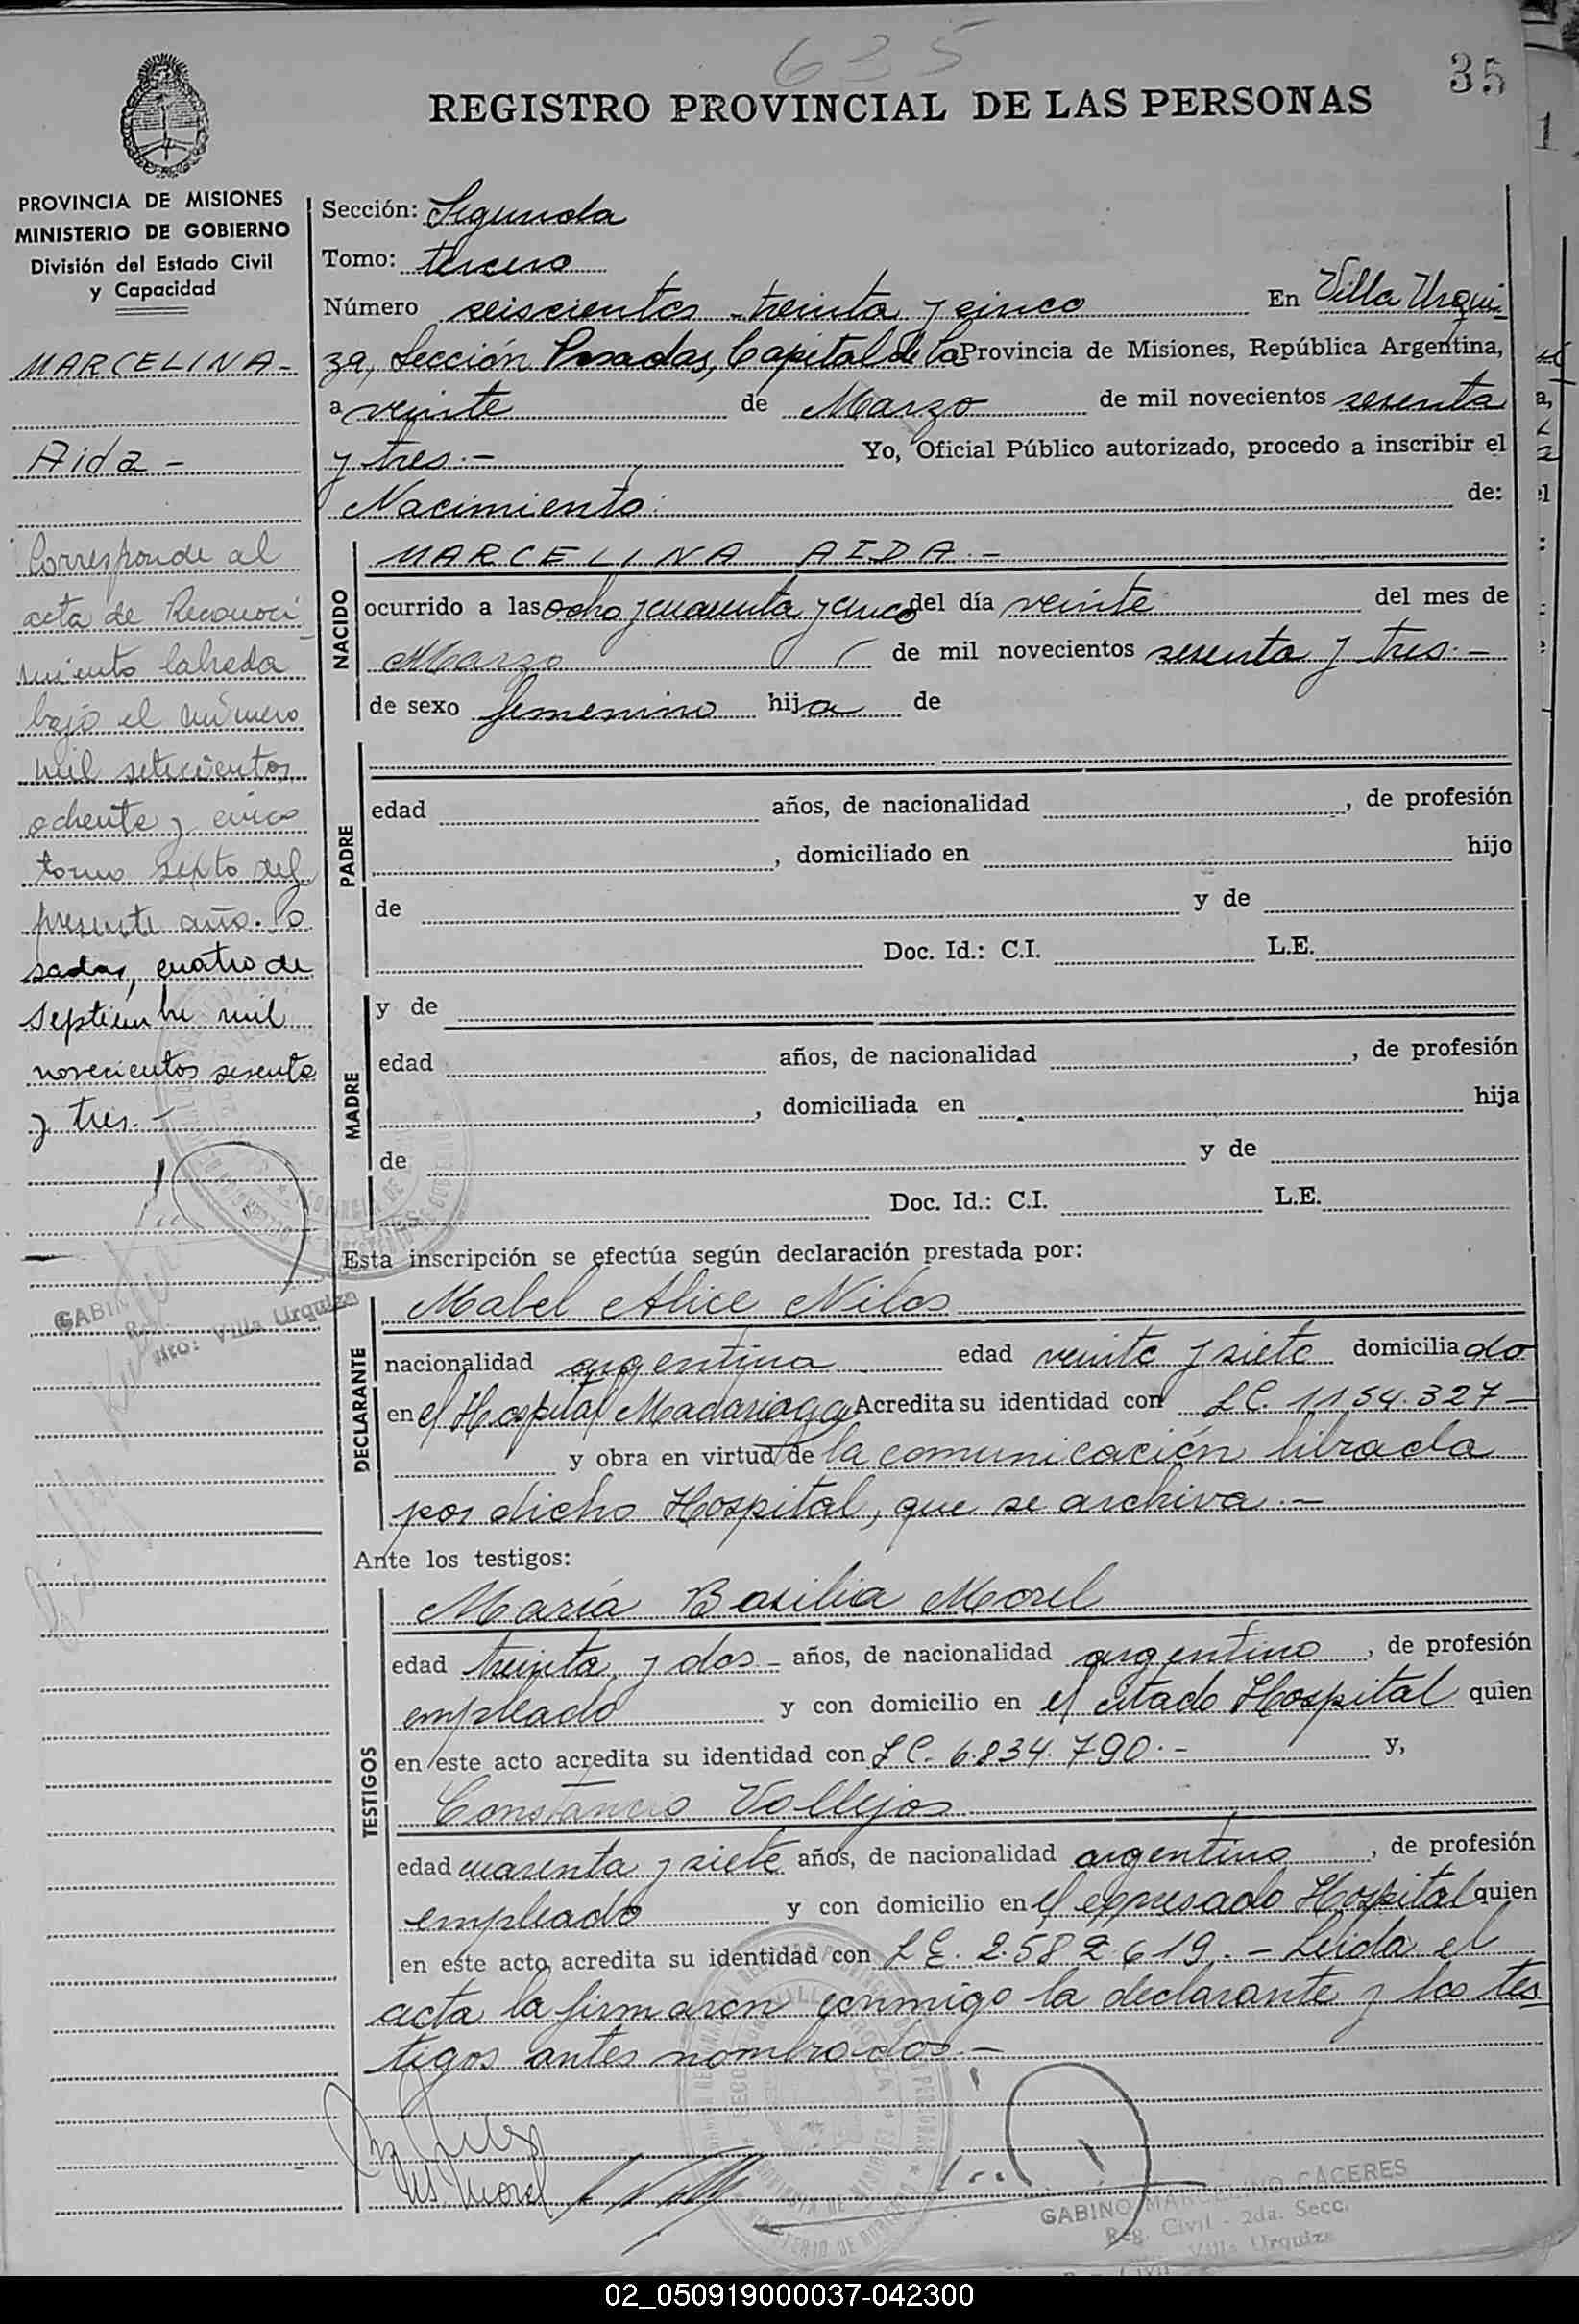 635
35
REGISTRO PROVINCIAL DE LAS PERSONAS
PROVINCIA DE MISIONES
MINISTERIO DE GOBIERNO
División del Estado Civil
y Capacidad
MARCELINA -
Aida -
Corresponde al
acta de Reconoci
miento labrada
bajo el número
mil setecientos
ochenta y cinco
tomo sexto del
presente año. Po
sadas, cuatro de
septiembre mil
novecientos sesenta
y tres. -
GABIN
Villa Urquiza
Sección: Segunda
Tomo: tercero
Número seiscientos treinta y cinco En Villa Urqui-
za, Sección Posadas, Capital de la Provincia de Misiones, República Argentina,
a veinte de Marzo de mil novecientos sesenta
y tres. - Yo, Oficial Público autorizado, procedo a inscribir el
Nacimiento: de:
NACIDO
MARCELINA AIDA. -
ocurrido a las ocho y cuarenta y cinco del día veinte del mes de
Marzo de mil novecientos sesenta y tres. -
de sexo femenino hija de
PADRE
edad años, de nacionalidad , de profesión
, domiciliado en hijo
de y de
Doc. Id.: C.I. L.E.
MADRE
y de
edad años, de nacionalidad , de profesión
, domiciliada en hija
de y de
Doc. Id.: C.I. L.E.
Esta inscripción se efectúa según declaración prestada por:
DECLARANTE
Mabel Alice Nilos
nacionalidad argentina edad veinte y siete domiciliado
en el Hospital Madariaga Acredita su identidad con LC. 1154.327 -
y obra en virtud de la comunicación librada
por dicho Hospital, que se archiva. -
Ante los testigos:
TESTIGOS
María Basilia Morel
edad treinta y dos - años, de nacionalidad argentino , de profesión
empleado y con domicilio en el citado Hospital quien
en este acto acredita su identidad con LC. 6.834.790. - y,
Constancio Vallejos
edad cuarenta y siete años, de nacionalidad argentino , de profesión
empleado y con domicilio en el expresado Hospital quien
en este acto acredita su identidad con LE. 2.582.619. - Leída el
acta la firmaron conmigo la declarante y los tes
tigos antes nombrados. -
Morel
GABINO MARCELINO CÁCERES
Reg. Civil - 2da. Secc.
Villa Urquiza
02_050919000037-042300